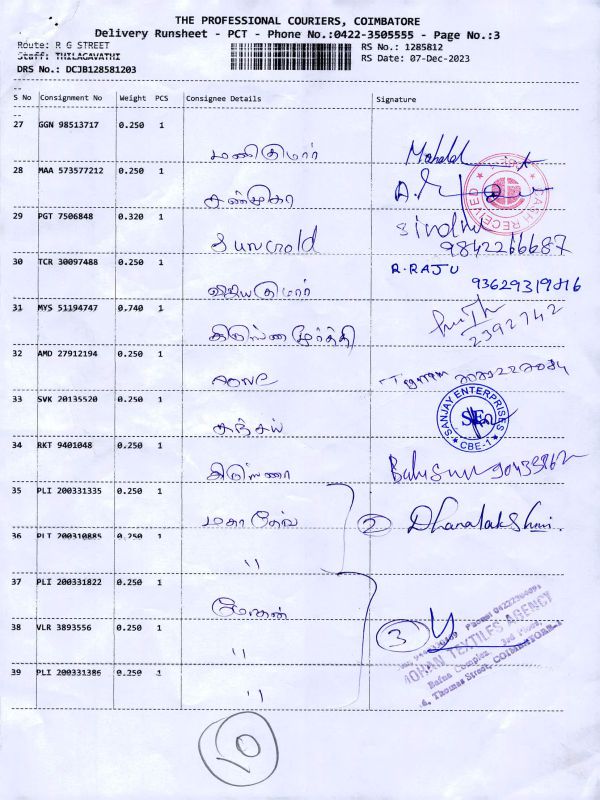 THE PROFESSIONAL COURIERS, COIMBATORE
Delivery Runsheet - PCT - Phone No.:0422-3505555 - Page No.:3
Route: R G STREET
RS No.: 1285812
Staff: THILAGAVATHI
RS Date: 07-Dec-2023
DRS No.: DCJB128581203
S No Consignment No Weight PCS Consignee Details Signature
27 GGN 98513717 0.250 1
மணிகுமார்
28 MAA 573577212 0.250 1
RECEIVED
29 PGT 7506848 0.320 1
Sindhu
9842266687
30 TCR 30097488 0.250 1
R.RAJU
விஜயகுமார் 93629319816
31 MYS 51194747 0.740 1
2392742
கிருஷ்ணமூர்த்தி
32 AMD 27912194 0.250 1
33 SVK 20135520 0.250 1
SANJAY ENTERPRISES
SE
CBE-1
சஞ்சய்
34 RKT 9401048 0.250 1
கிருஷ்ணா
35 PLI 200331335 0.250 1
மகாதேவ் 2 Dhanalakshmi.
36 PLI 200310885 0.250 1
"
37 PLI 200331822 0.250 1
மோகன்
38 VLR 3893556 0.250 1
3
MOHAN TEXTILES AGENCY
Bafna Complex 3rd Floor,
Thomas Street, COIMBATORE-1
"
39 PLI 200331386 0.250 1
"
10